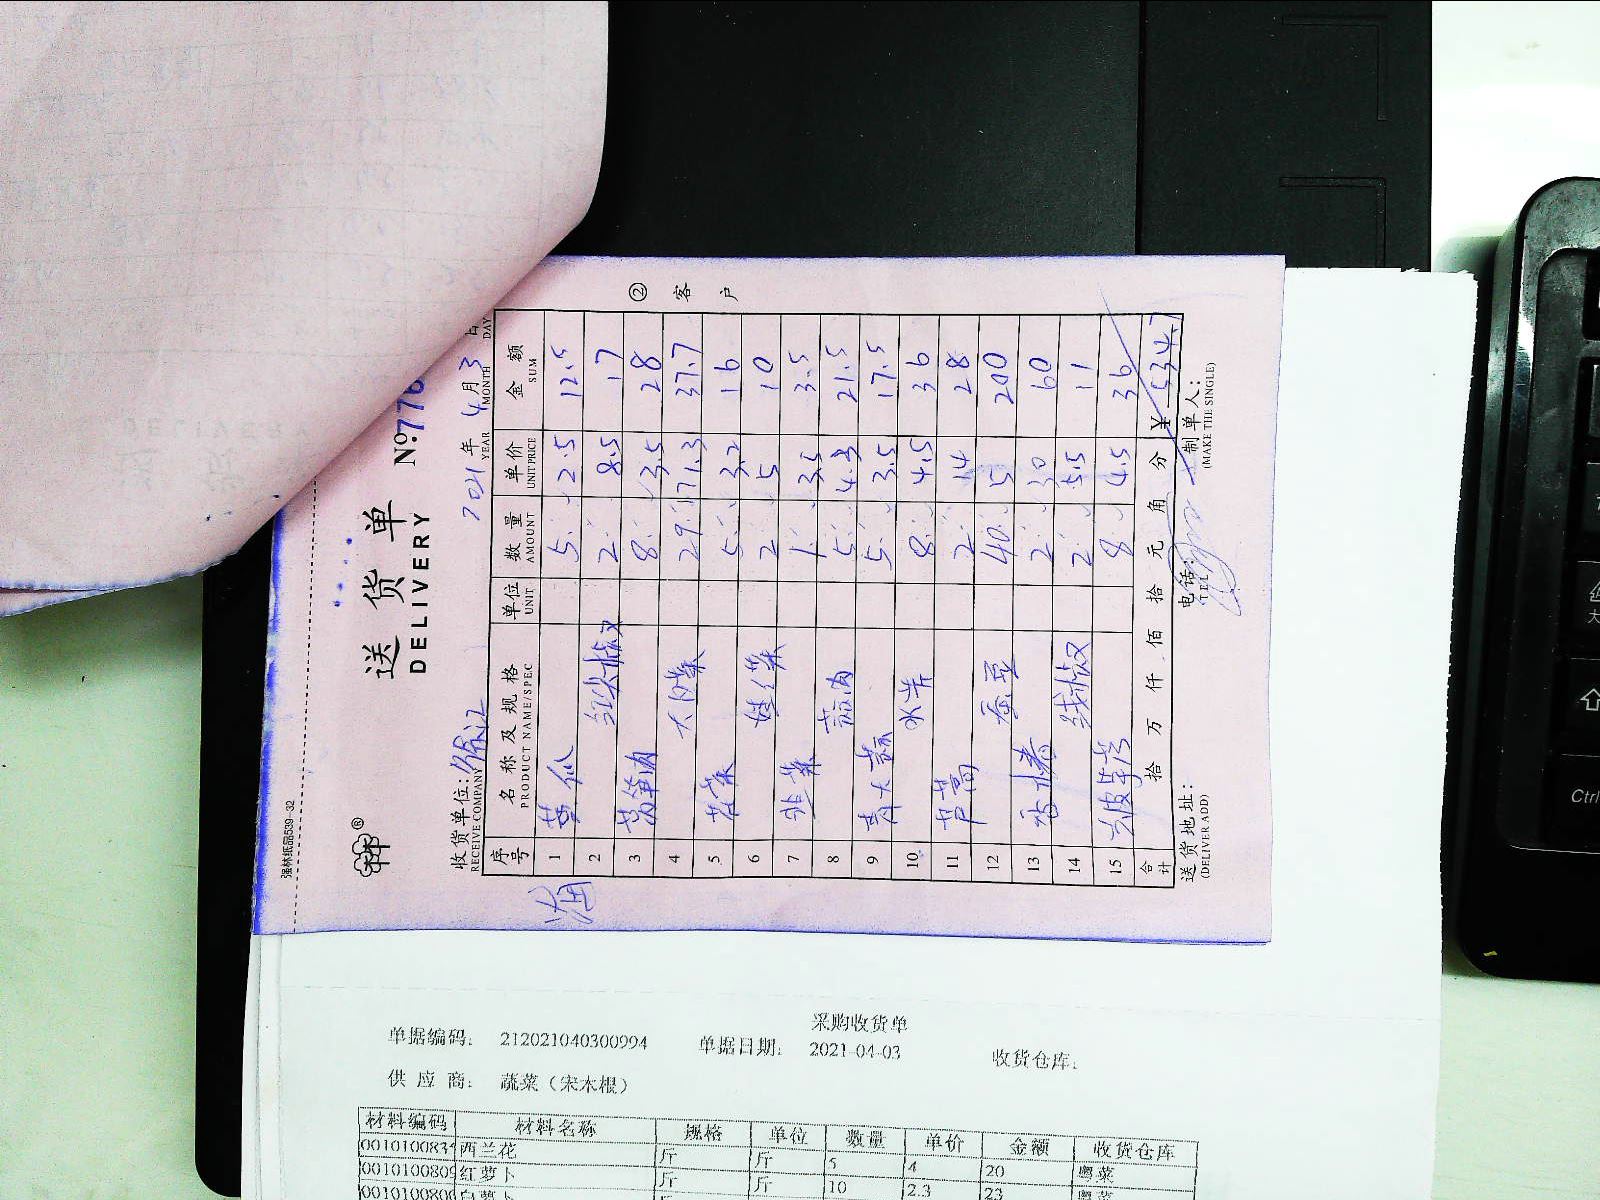 强林纸品539-32
送货单
DELIVERY
№776
② 客户
收货单位：徐汇
RECEIVE COMPANY
2021 年 4 月 3 日
YEAR MONTH DAY
序号 名称及规格 单位 数量 单价 金额
PRODUCT NAME/SPEC UNIT AMOUNT UNIT PRICE SUM
1 黄瓜 5 2.5 12.5
2 红尖椒 2 8.5 17
3 莴笋 8 3.5 28
4 大白菜 29 1.3 37.7
5 花菜 5 3.2 16
6 娃娃菜 2 5 10
7 韭菜 1 3.5 3.5
8 5 4.3 21.5
9 青大蒜 5 3.5 17.5
10 水芹 8 4.5 36
11 芦蒿 2 14 28
12 蚕豆 40 5 200
13 2 30 60
14 线椒 2 5.5 11
15 8 4.5 36
合计 拾 万 仟 佰 拾 元 角 分 ¥ 534.7
送货地址： 电话： 制单人：
(DELIVER ADD) (TEL) (MAKE THE SINGLE)
采购收货单
单据编码： 212021040300994 单据日期： 2021-04-03 收货仓库：
供应商： 蔬菜（宋木根）
材料编码 材料名称 规格 单位 数量 单价 金额 收货仓库
001010083 西兰花 斤 斤 5 4 20 粤菜
001010080 红萝卜 斤 斤 10 2.3 23 粤菜
白萝卜
Ctrl